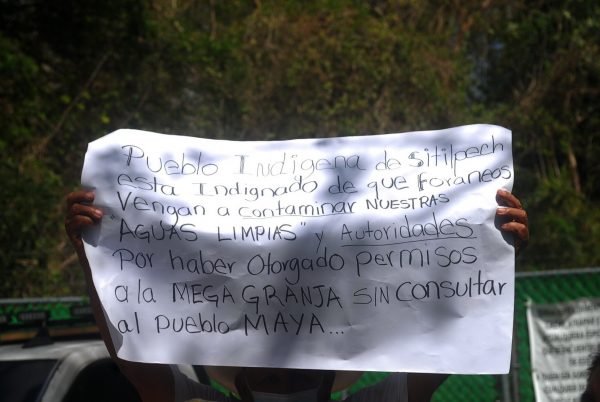 Pueblo Indigena de Sitilpech
esta Indignado de que foraneos
Vengan a contaminar NUESTRAS
"AGUAS LIMPIAS" y Autoridades
Por haber Otorgado permisos
a la MEGA GRANJA SIN Consultar
al Pueblo MAYA...